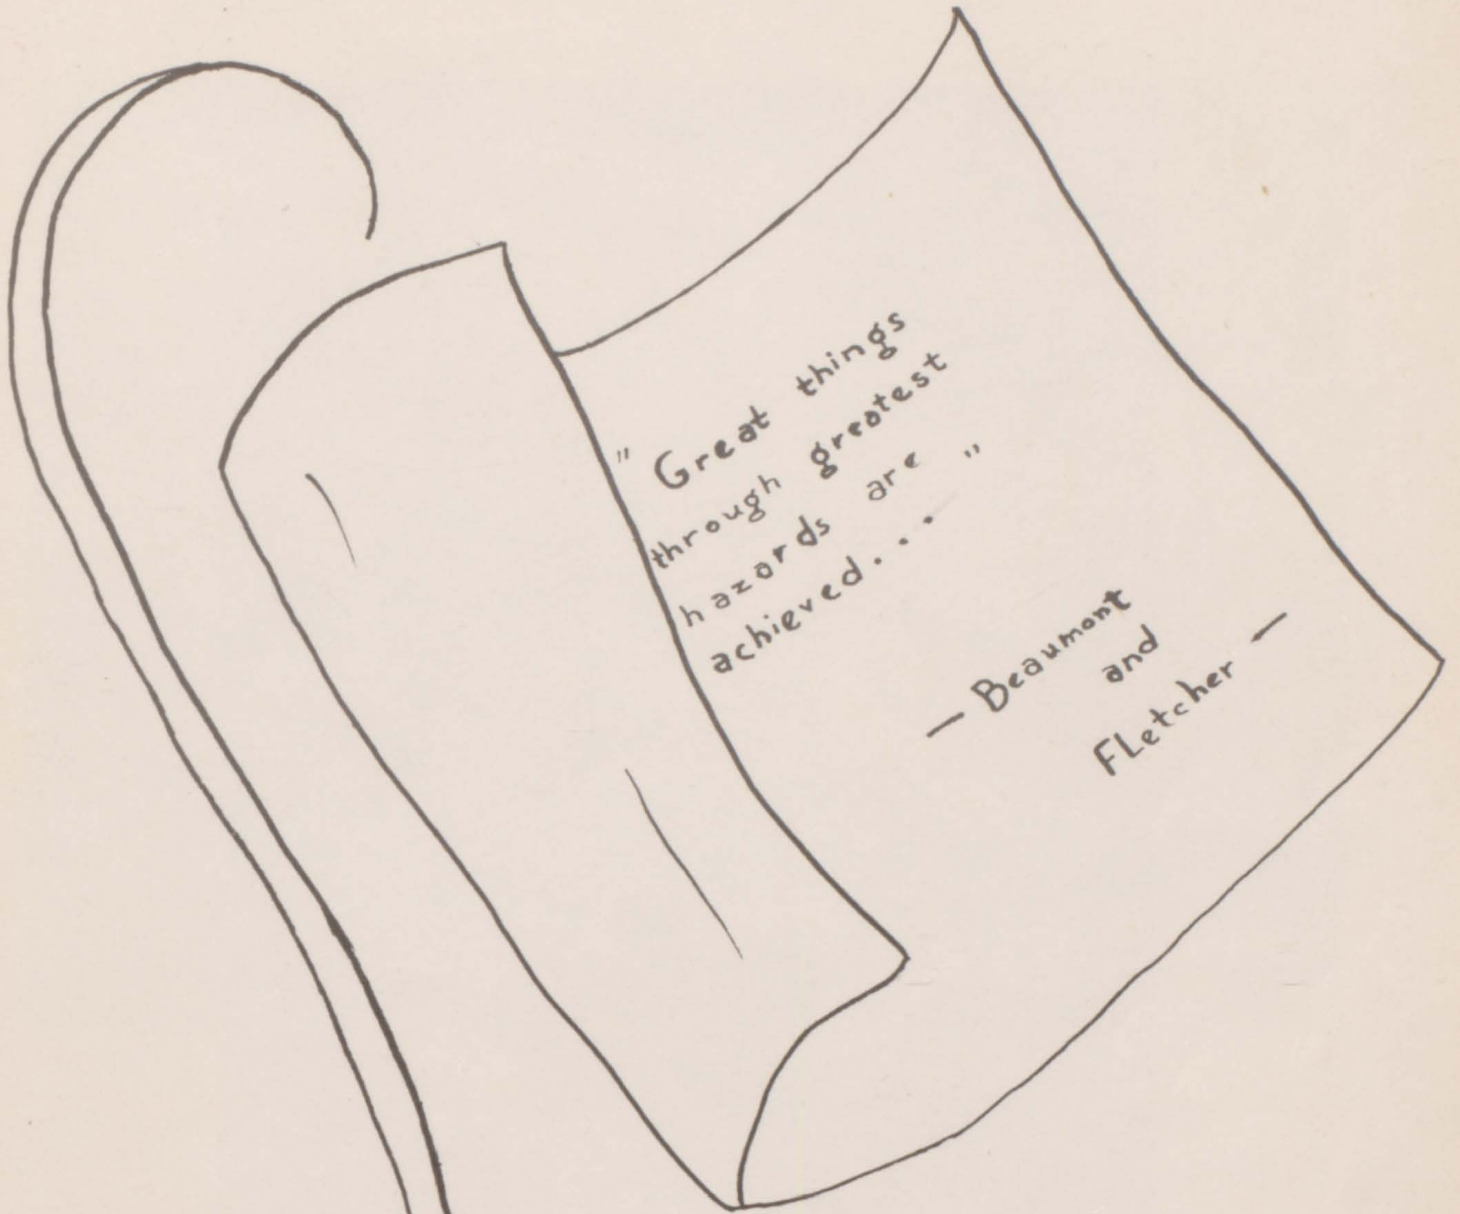 " Great things
through greatest
hazards are "
achieved...
— Beaumont
and
FLetcher —